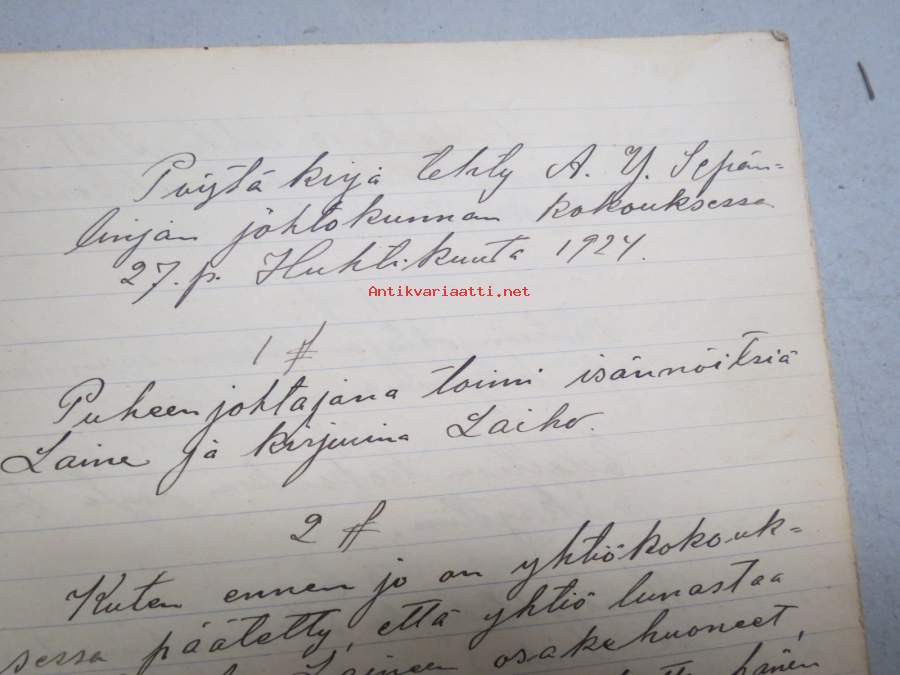 Pöytä kirja tehty A. Y. Sepän=
linjan johtokunnan kokouksessa
27. p. Huhtikuuta 1924.
Antikvariaatti.net
1 §
Puheenjohtajana toimi isännöitsiä
Laine ja kirjurina Laiho.
2 §
Kuten ennen jo on yhtiökokouk=
sessa päätetty, että yhtiö lunastaa
Laineen osakehuoneet,
hänen